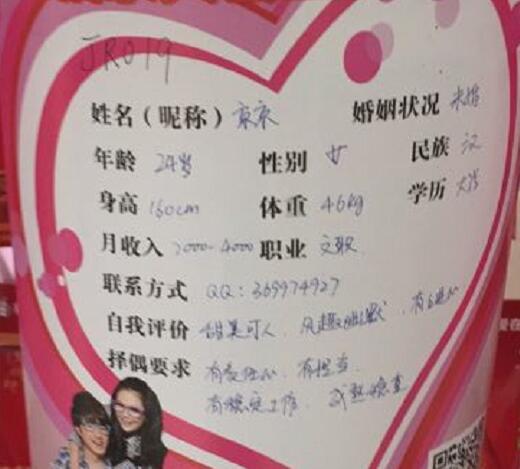 JR019
姓名（昵称） 京京 婚姻状况 未婚
年龄 24岁 性别 女 民族 汉
身高 160cm 体重 46kg 学历 大学
月收入 2000-4000 职业 文职
联系方式 QQ：369974927
自我评价 甜美可人、风趣幽默、有上进心
择偶要求 有责任心、有担当
有稳定工作、成熟稳重